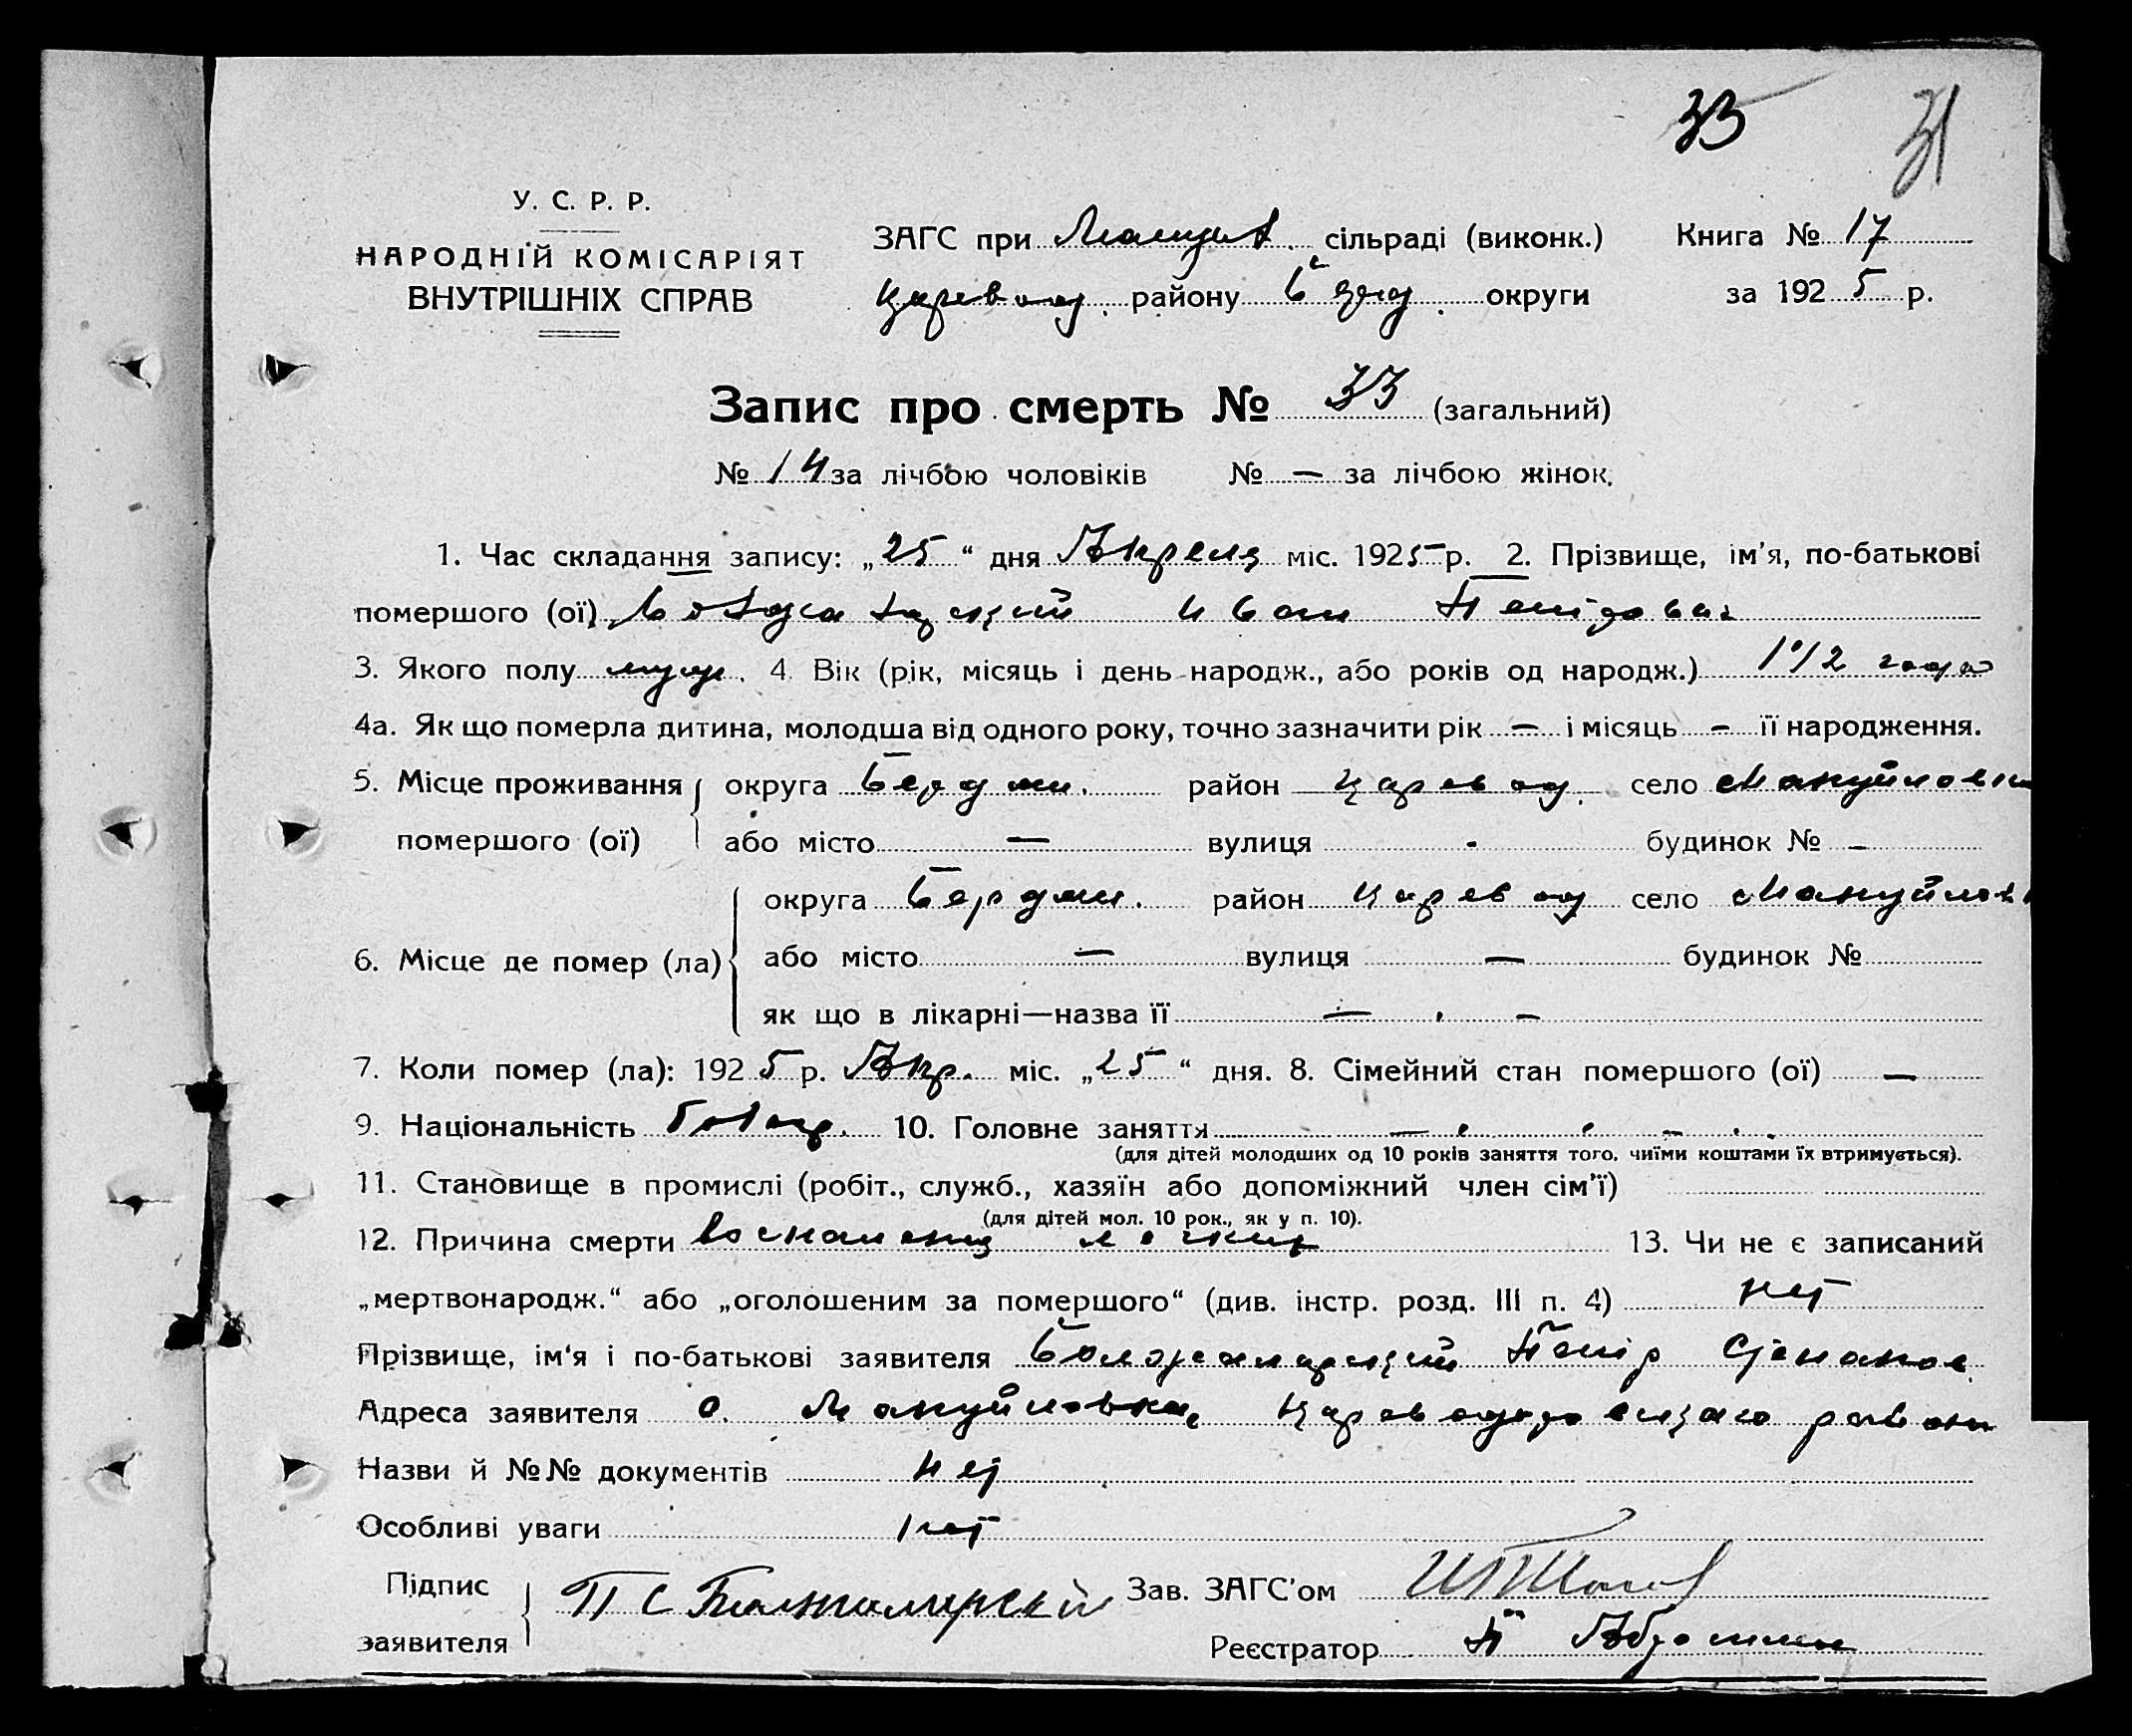 33 31
У. С. Р. Р.
НАРОДНІЙ КОМІСАРІЯТ
ВНУТРІШНІХ СПРАВ
ЗАГС при сільраді (виконк.) Книга № 17
району округи за 1925 р.
Запис про смерть № 33 (загальний)
№ 14 за лічбою чоловіків № — за лічбою жінок.
1. Час складання запису: „25“ дня Апреля міс. 1925 р. 2. Прізвище, ім'я, по-батькові
помершого (ої) Иван
3. Якого полу муж. 4. Вік (рік, місяць і день народж., або років од народж.) года
4а. Як що померла дитина, молодша від одного року, точно зазначити рік — і місяць - її народження.
5. Місце проживання округа район Царевод. село Мануйловка
помершого (ої) або місто — вулиця - будинок № -
округа район Царевод село
6. Місце де помер (ла) або місто — вулиця — будинок №
як що в лікарні—назва її — . -
7. Коли помер (ла): 1925 р. Апр. міс. „25“ дня. 8. Сімейний стан помершого (ої) —
9. Національність Болгар. 10. Головне заняття —
(для дітей молодших од 10 років заняття того, чиїми коштами їх втримується).
11. Становище в промислі (робіт., служб., хазяїн або допоміжний член сім'ї)
(для дітей мол. 10 рок., як у п. 10).
12. Причина смерти воспаления легких 13. Чи не є записаний
„мертвонародж.“ або „оголошеним за помершого“ (див. інстр. розд. III п. 4) нет
Прізвище, ім'я і по-батькові заявителя Петр Степанов.
Адреса заявителя с. Мануйловка, района
Назви й №№ документів нет
Особливі уваги нет
Підпис
заявителя П С
Зав. ЗАГС'ом
Реєстратор П